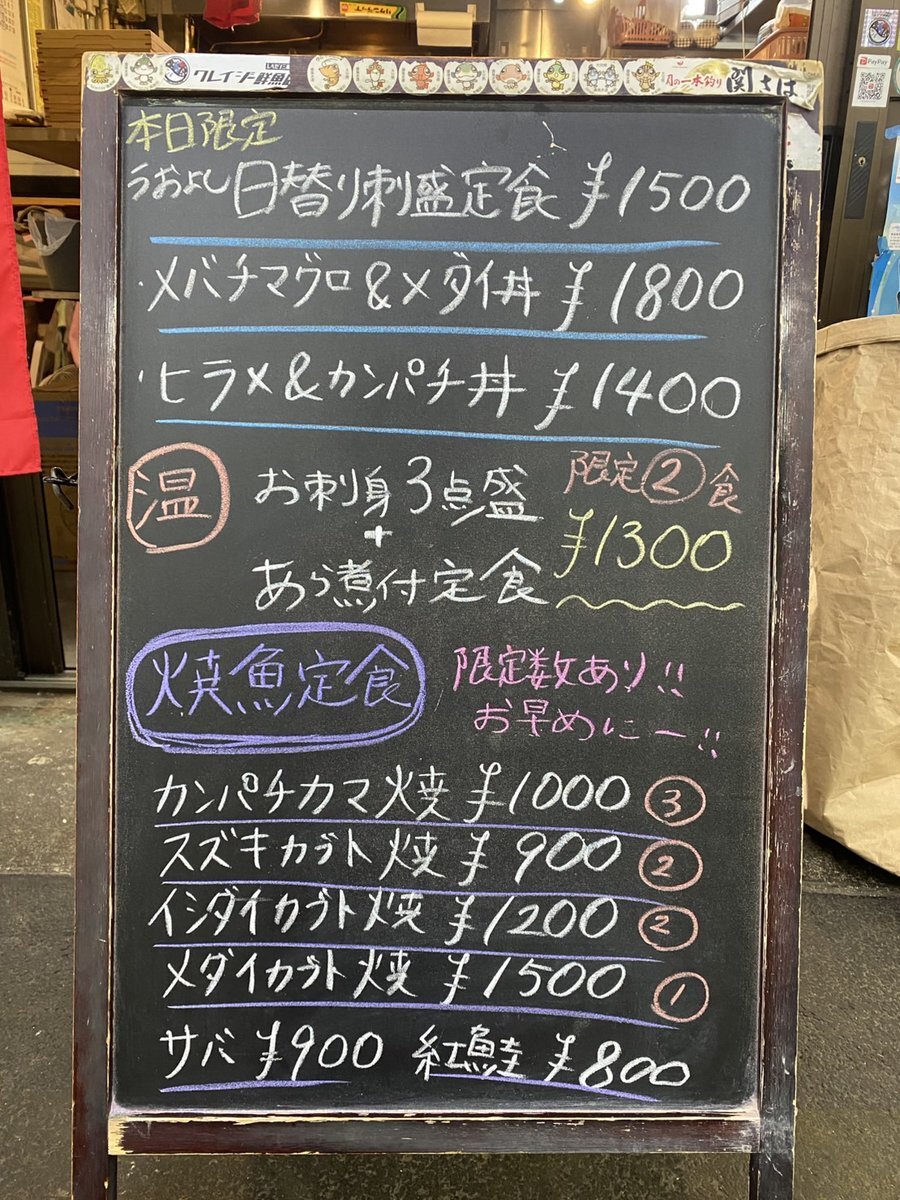 クレイジー鮮魚
の一本釣り 関さば
PayPay
本日限定
うおよし 日替り刺盛定食 ¥1500
・メバチマグロ&メダイ丼 ¥1800
・ヒラメ&カンパチ丼 ¥1400
温 お刺身3点盛 限定②食
+ ¥1300
あら煮付定食
焼魚定食 限定数あり!!
お早めにー!!
カンパチカマ焼 ¥1000 ③
スズキカブト焼 ¥900 ②
イシダイカブト焼 ¥1200 ②
メダイカブト焼 ¥1500 ①
サバ ¥900 紅鮭 ¥800